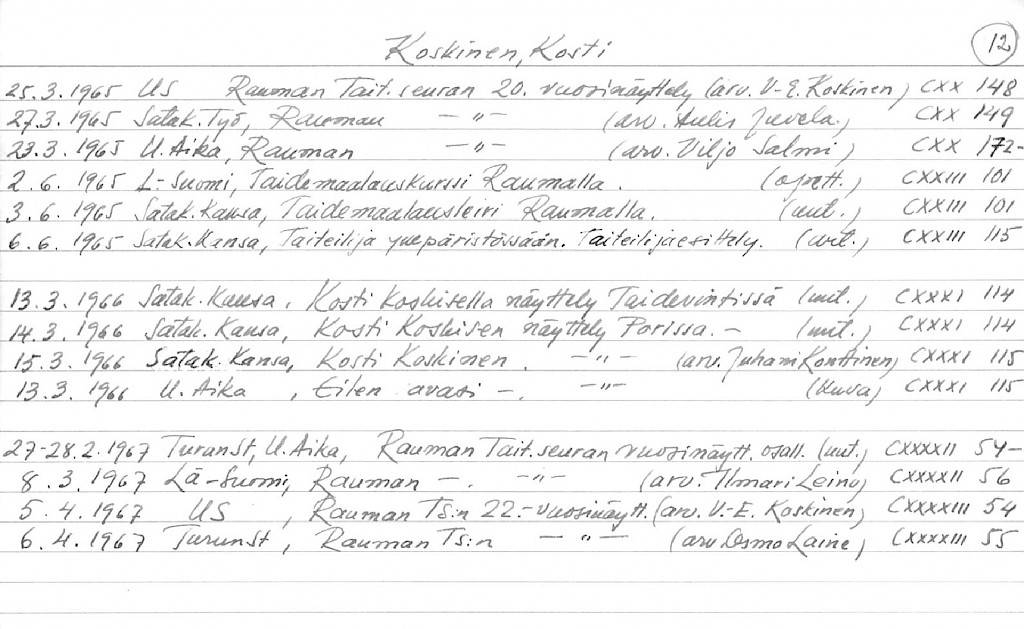 Koskinen, Kosti 12
25.3.1965 US Rauman Tait.seuran 20. vuosinäyttely (arv. V-E. Koskinen) CXX 148
27.3.1965 Satak.Työ, Rauman — " — (arv. Aulis Juvela.) CXX 149
23.3.1965 U.Aika, Rauman — " — (arv. Viljo Salmi) CXX 172-
2.6.1965 L-Suomi, Taidemaalauskurssi Raumalla. (opett.) CXXIII 101
3.6.1965 Satak.Kansa, Taidemaalausleiri Raumalla. (uut.) CXXIII 101
6.6.1965 Satak.Kansa, Taiteilija ympäristössään. Taiteilijaesittely. (uut.) CXXIII 115
13.3.1966 Satak.Kansa, Kosti Koskisella näyttely Taidevintissä (uut.) CXXXI 114
14.3.1966 Satak.Kansa, Kosti Koskisen näyttely Porissa. — (uut.) CXXXI 114
15.3.1966 Satak.Kansa, Kosti Koskinen. — " — (arv. Juhani Konttinen) CXXXI 115
13.3.1966 U.Aika, Eilen avasi —. — " — (kuva) CXXXI 115
27-28.2.1967 TurunSt, U.Aika, Rauman Tait.seuran vuosinäytt. osall. (uut.) CXXXXII 54-
8.3.1967 Lä-Suomi, Rauman —. — " — (arv. Ilmari Leino) CXXXXII 56
5.4.1967 US, Rauman TS:n 22.-vuosinäytt. (arv. V.-E. Koskinen) CXXXXIII 54
6.4.1967 TurunSt, Rauman Ts:n — " — (arv Osmo Laine) CXXXXIII 55